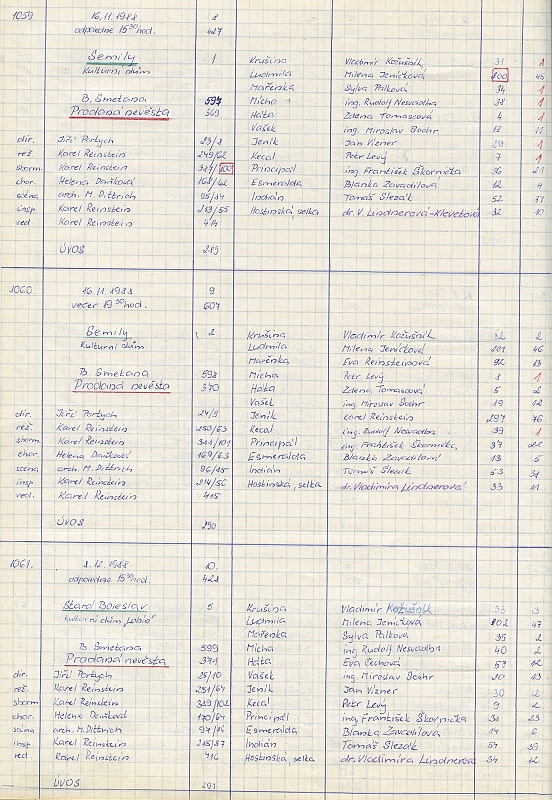 1059 16.11.1988 8
odpoledne 15 30 hod. 427
Semily 1 Krušina Vladimír Kožušník 31 1
Kulturní dům Ludmila Milena Jeničková 100 45
Mařenka Sylva Pálková 34 1
B. Smetana 597 Mícha ing. Rudolf Nesvadba 38 1
Prodaná nevěsta 369 Háta Zdena Tomasová 4 1
Vašek ing. Miroslav Šochr 18 11
dir. Jiří Partych 23/8 Jeník Jan Vízner 29 1
rež. Karel Reinstein 249/62 Kecal Petr Levý 7 1
sborm. Karel Reinstein 347/100 Principál ing. František Škornička 36 21
chor. Helena Daňková 168/62 Esmeralda Blanka Zavadilová 12 4
scéna arch. M. Dittrich 95/14 Indián Tomáš Slezák 52 31
insp. Karel Reinstein 213/55 Hostinská, selka dr. V. Lindnerová-Klevetová 32 10
ved. Karel Reinstein 414
ÚVOS 289
1060 16.11.1988 9
večer 19 30 hod. 607
Semily 2 Krušina Vladimír Kožušník 32 2
Kulturní dům Ludmila Milena Jeničková 101 46
Mařenka Eva Reinsteinová 92 13
B. Smetana 598 Mícha Petr Levý 8 1
Prodaná nevěsta 370 Háta Zdena Tomasová 5 2
Vašek ing. Miroslav Šochr 19 12
dir. Jiří Partych 24/9 Jeník Karel Reinstein 297 76
rež. Karel Reinstein 250/63 Kecal ing. Rudolf Nesvadba 39 1
sborm. Karel Reinstein 348/101 Principál ing. František Škornička 37 22
chor. Helena Daňková 169/63 Esmeralda Blanka Zavadilová 13 5
scéna arch. M. Dittrich 96/15 Indián Tomáš Slezák 53 32
insp. Karel Reinstein 214/56 Hostinská, selka dr. Vladimíra Lindnerová 33 11
ved. Karel Reinstein 415
ÚVOS 290
1061. 8.12.1988 10.
odpoledne 15 30 hod. 428
Stará Boleslav 5 Krušina Vladimír Kožušník 33 3
kulturní dům „Labín“ Ludmila Milena Jeničková 102 47
Mařenka Sylva Pálková 35 2
B. Smetana 599 Mícha ing. Rudolf Nesvadba 40 2
Prodaná nevěsta 371 Háta Eva Čechová 57 12
dir. Jiří Partych 25/10 Vašek ing. Miroslav Šochr 20 13
rež. Karel Reinstein 251/64 Jeník Jan Vízner 30 2
sborm Karel Reinstein 349/102 Kecal Petr Levý 9 2
chor. Helena Daňková 170/64 Principál ing. František Škornička 38 23
scéna arch. M. Dittrich 97/16 Esmeralda Blanka Zavadilová 14 6
insp. Karel Reinstein 215/57 Indián Tomáš Slezák 54 33
ved. Karel Reinstein 416 Hostinská, selka dr. Vladimíra Lindnerová 34 12
ÚVOS 291